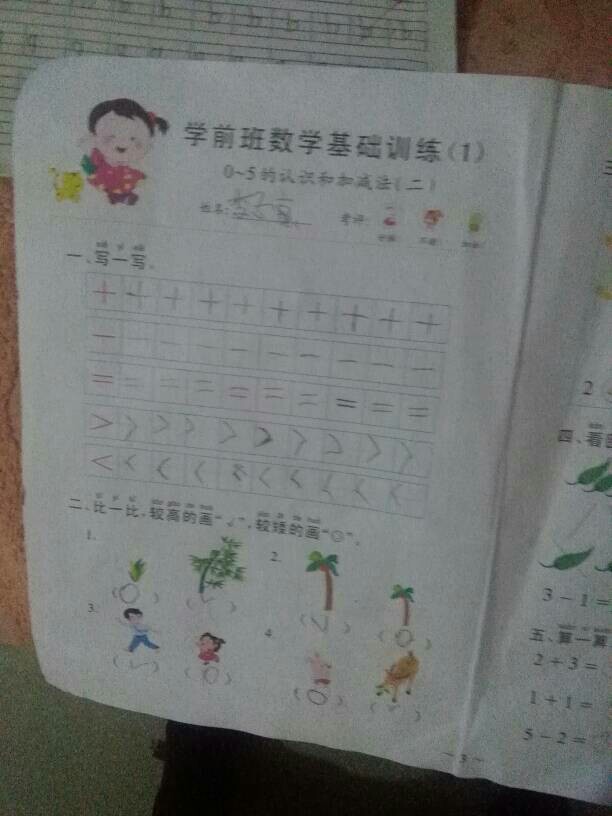 学前班数学基础训练(1)
0~5的认识和加减法(二)
姓名:
一、写一写。
+ + + + + + + + + +
- - - - - - - - - -
= = = = = = = = = =
> > > > > > > > > >
< < < < < < < < < <
二、比一比，较高的画“√”，较矮的画“○”。
1.
2.
(○) (√) (√) (○)
3.
4.
(√) (○) (○) (√)
~3~
2
四、看
3-1=
五、算一算
2+3=
1+1=
5-2=